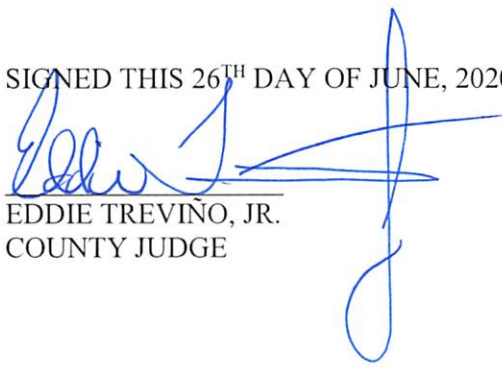 SIGNED THIS 26TH DAY OF JUNE, 2020
Eddie T. J
EDDIE TREVIÑO, JR.
COUNTY JUDGE